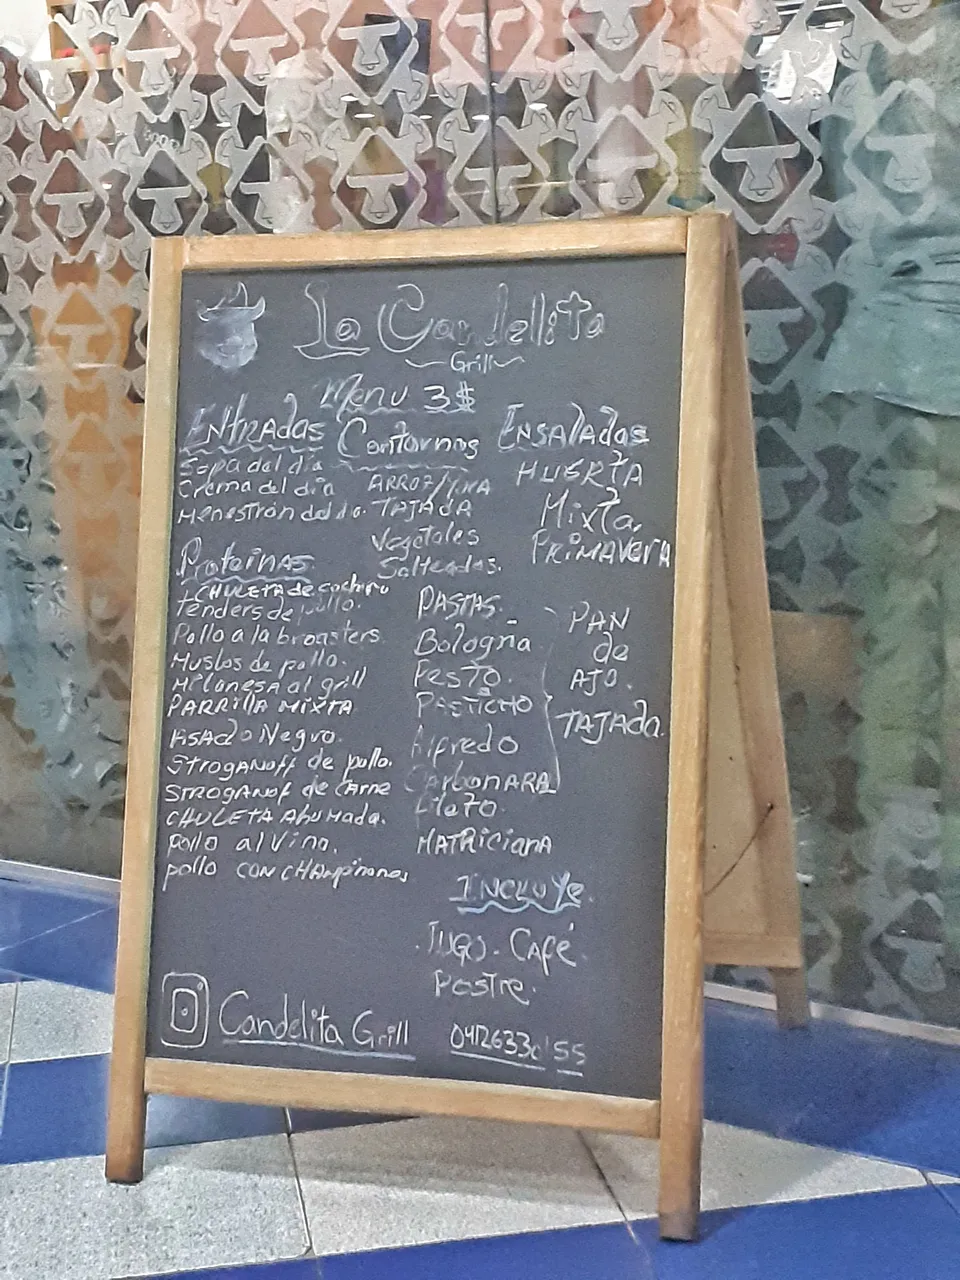 La Candelita
Grill
Menu 3$
Entradas
Sopa del dia
Crema del dia
Menestrón del dia.
Contornos
ARROZ/YUCA
TAJADA
Vegetales
Salteados.
Ensaladas
HUERTA
Mixta,
PRIMAVERA
Proteinas
CHULETA de cochino
Tenders de pollo.
Pollo a la broasters.
Muslos de pollo.
Milanesa al grill
PARRILLA MIXTA
Asado Negro.
Stroganoff de pollo.
STROGANOF de Carne
CHULETA Ahumada.
pollo al Vino.
pollo CON CHAMpiñones
PASTAS.
Bologña
PESTO.
PASTICHO
Alfredo
CarbonARA
MATRiciana
PAN
de
AJO.
TAJADA.
INCLUYE.
JUGO. Café.
Postre.
Candelita Grill